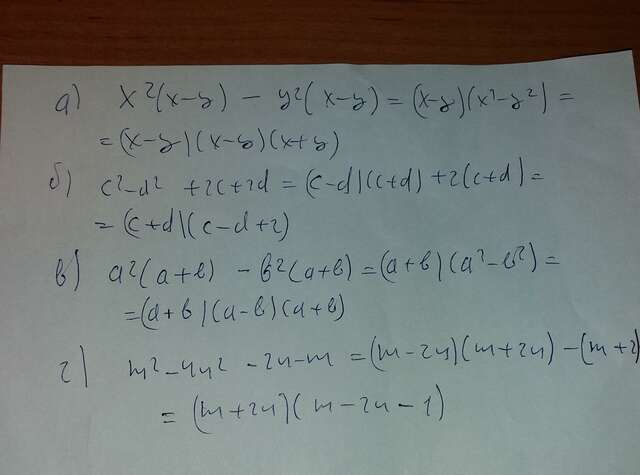 а) x²(x-y) - y²(x-y) = (x-y)(x²-y²) =
= (x-y)(x-y)(x+y)
б) c²-d² +2c+2d = (c-d)(c+d) +2(c+d) =
= (c+d)(c-d+2)
в) a²(a+b) - b²(a+b) = (a+b)(a²-b²) =
= (a+b)(a-b)(a+b)
г) m²-4n² -2n-m = (m-2n)(m+2n) -(m+2
= (m+2n)(m-2n-1)